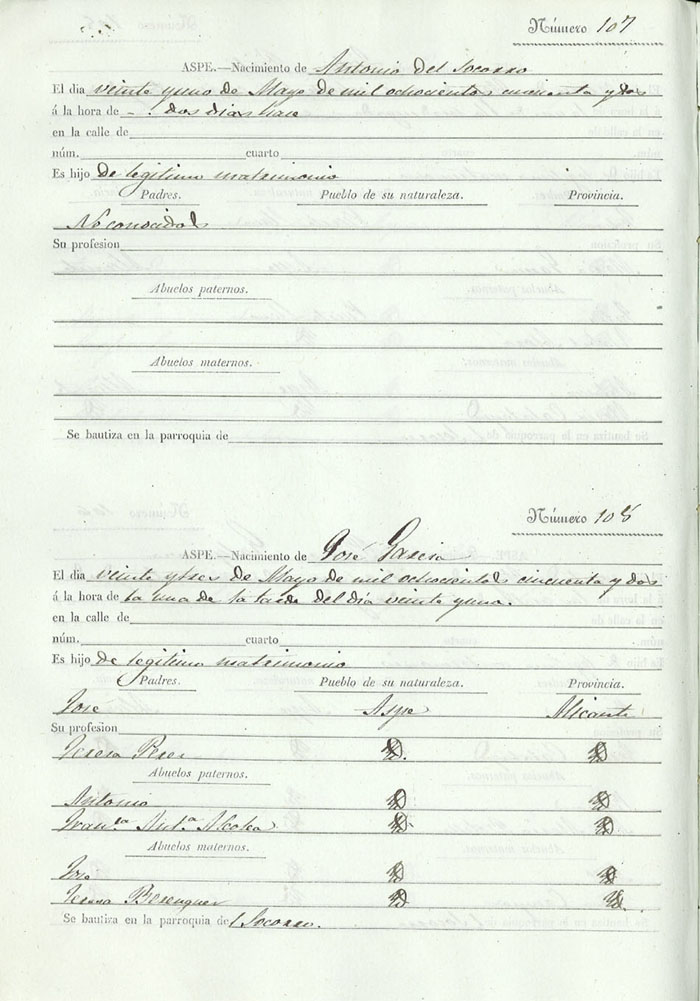 Número 107
ASPE.—Nacimiento de Antonio del Socorro
El dia veinte y uno de Mayo de mil ochocientos cincuenta y dos
á la hora de - . dos dias hace
en la calle de
núm. cuarto
Es hijo de legitimo matrimonio
Padres. Pueblo de su naturaleza. Provincia.
No conocidos
Su profesion
Abuelos paternos.
Abuelos maternos.
Se bautiza en la parroquia de
Número 108
ASPE.—Nacimiento de José Garcia
El dia veinte y tres de Mayo de mil ochocientos cincuenta y dos
á la hora de la una de la tarde del dia veinte y uno.
en la calle de
núm. cuarto
Es hijo de legitimo matrimonio
Padres. Pueblo de su naturaleza. Provincia.
Jose Aspe Alicante
Su profesion
Teresa Peres
Abuelos paternos.
Antonio
Fran.ca Ant.a Alcolea
Abuelos maternos.
Jose
Teresa Berenguer
Se bautiza en la parroquia del Socorro.